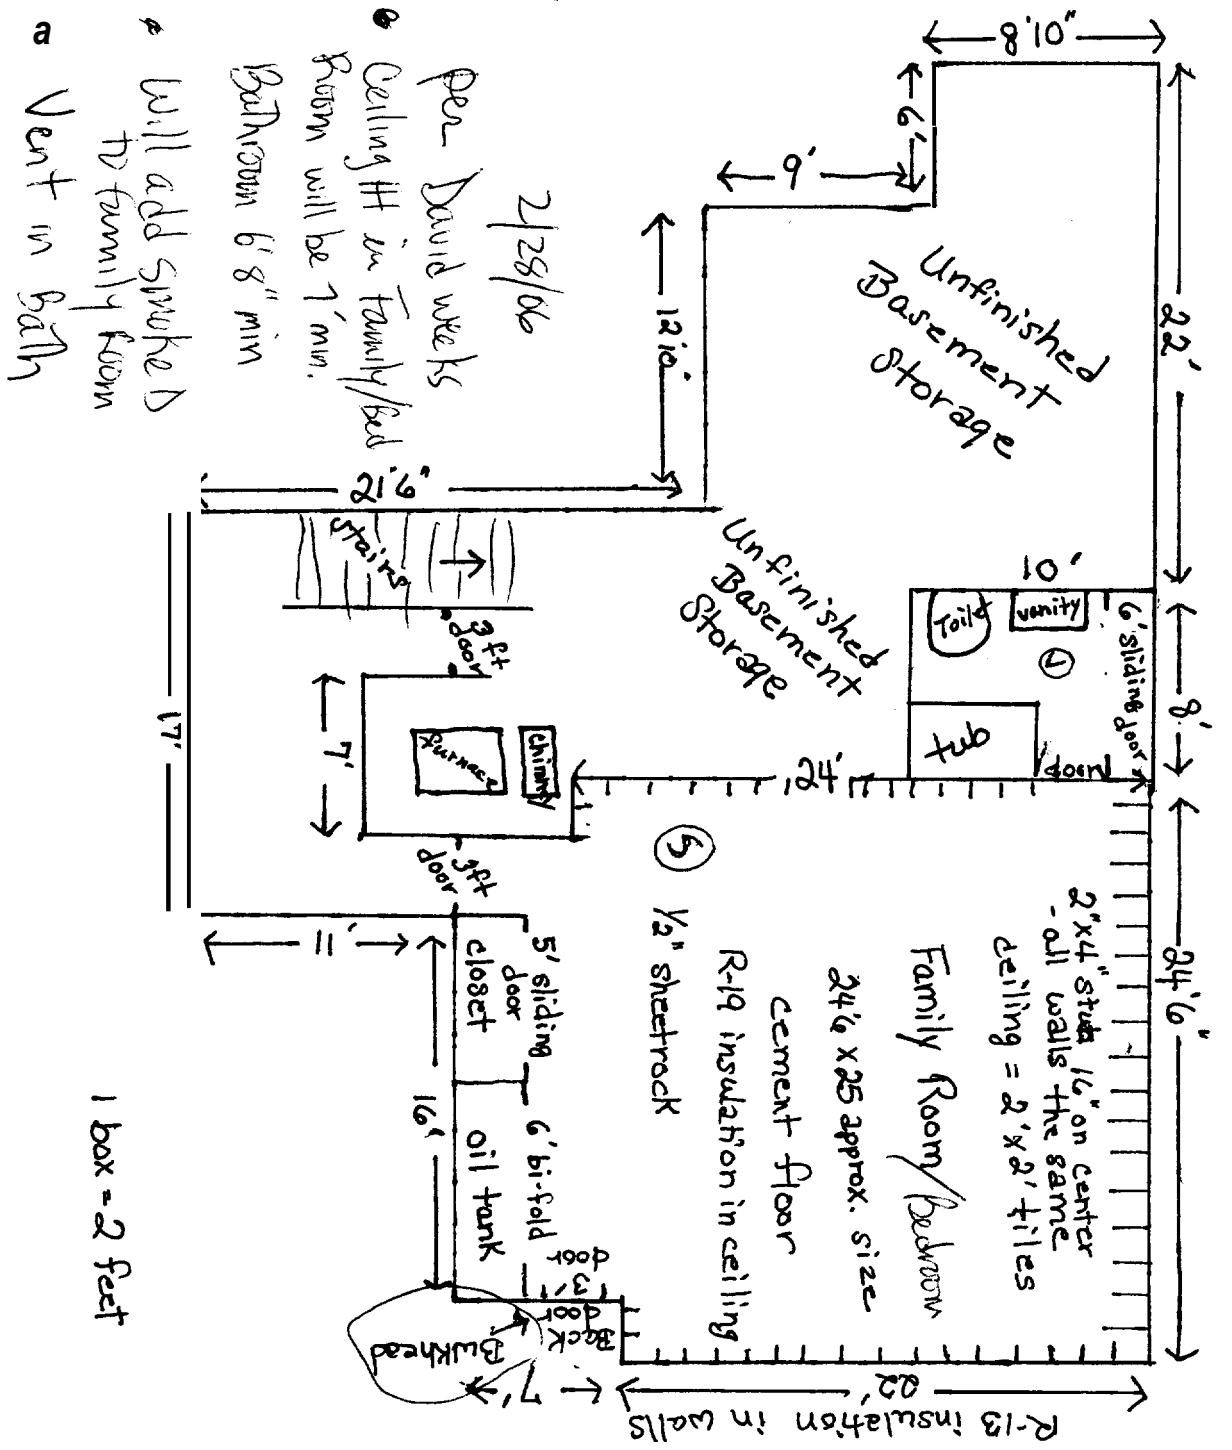 2/28/06
per David weeks
Ceiling Ht in family/bed
Room will be 7' min.
Bathroom 6' 8" min
Will add Smoke D
to family Room
a Vent in Bath
8'10"
6'
9'
12'10"
22'
Unfinished
Basement
Storage
21'6"
stairs
17'
3 ft
door
7'
furnace
chimney
3 ft
door
Unfinished
Basement
Storage
10'
Toilet
vanity
V
6' sliding door
8'
tub
door
24'
24'6"
2"x4" studs 16" on center
- all walls the same
ceiling = 2' x 2' tiles
Family Room/Bedroom
24'6 x 25 approx. size
cement floor
R-19 insulation in ceiling
1/2" sheetrock
S
11'
16'
5' sliding
door
closet
6' bi-fold
oil tank
3'
door
Back
door
Bulkhead
7'
22'
R-13 insulation in walls
1 box = 2 feet